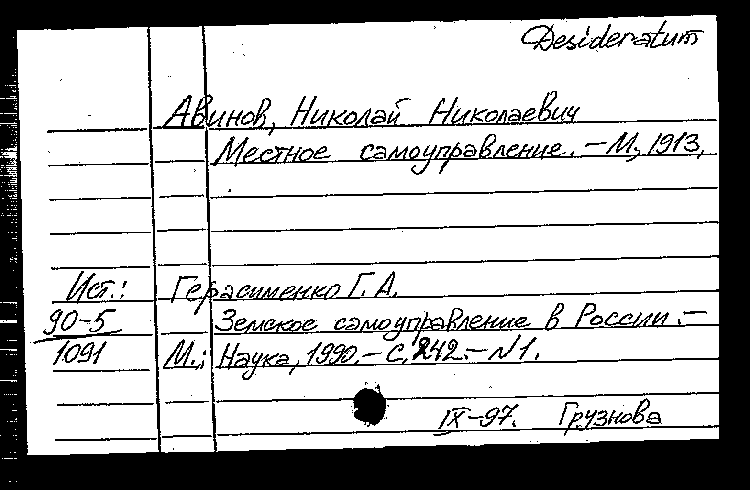 Desideratum
Авинов, Николай Николаевич
Местное самоуправление. - М., 1913.
Ист.: Герасименко Г. А.
90-5 Земское самоуправление в России. -
1091 М.: Наука, 1990. - С. 242. - N1.
IX-97. Грузнова